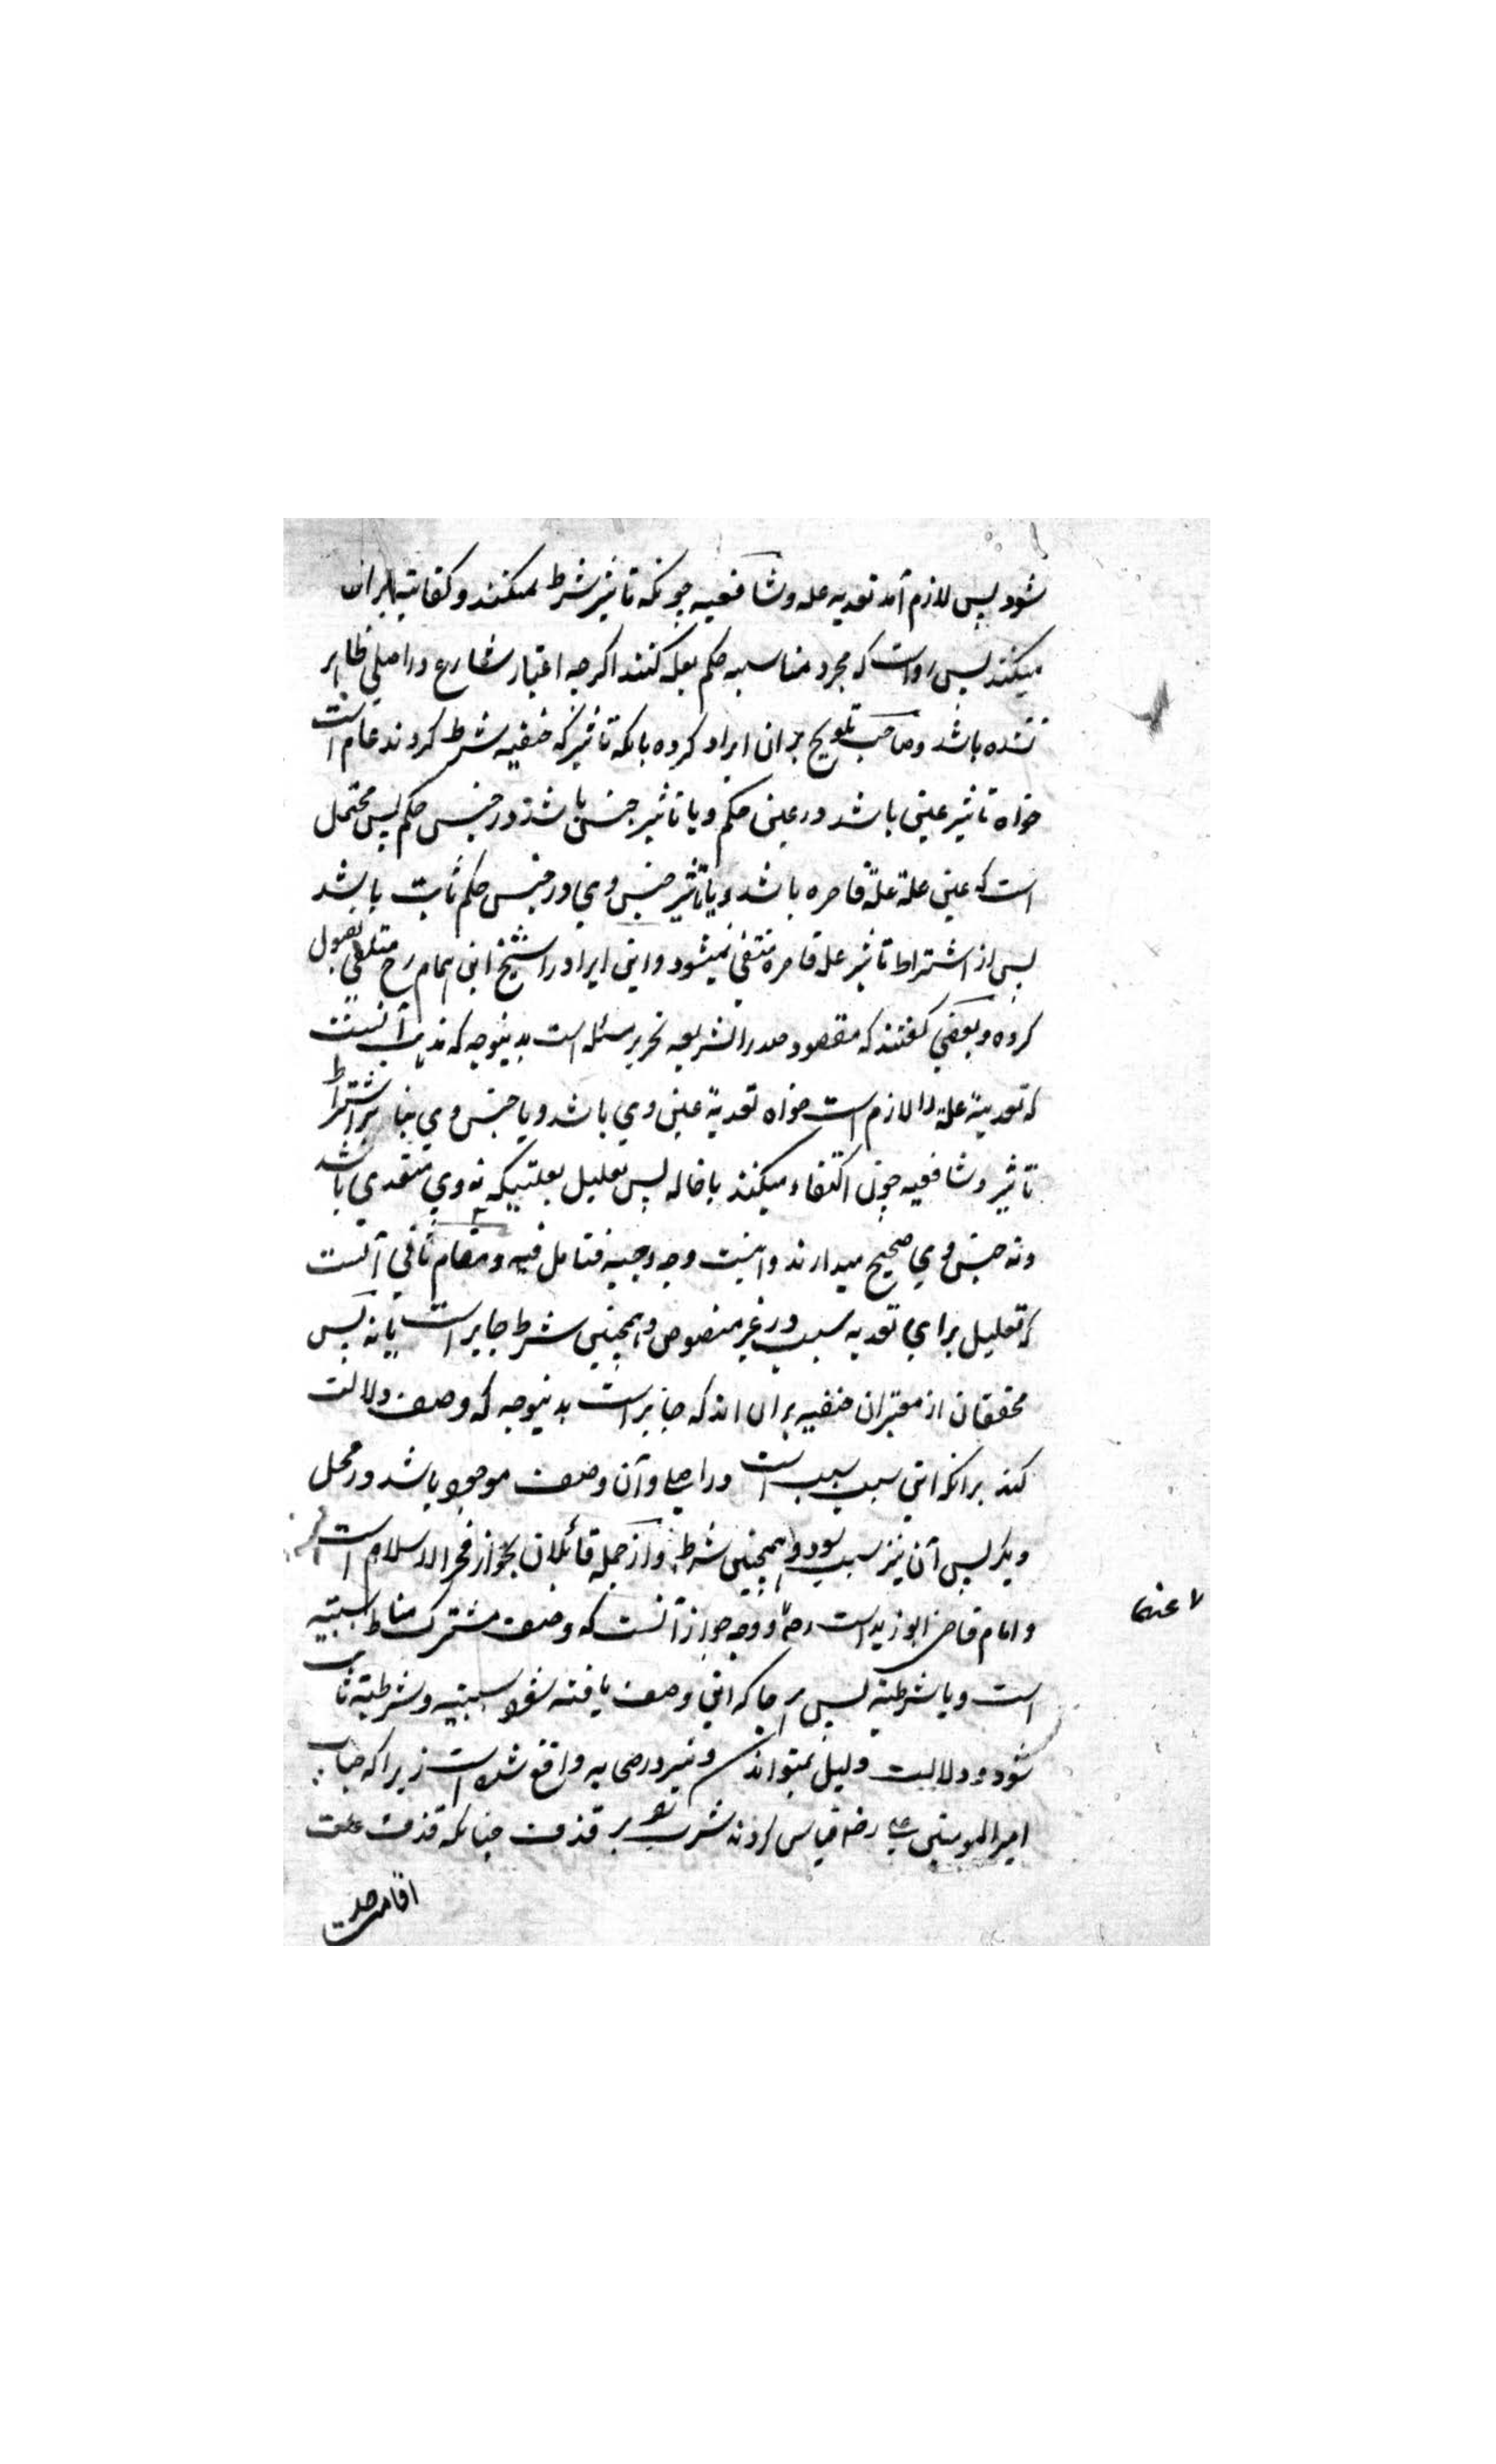 شود پس لازم آمد تعدیه عله و شافعیه چونکه تاثیر شرط نمیکنند و کفایت بران
میکنند پس رواست که مجرد مناسبه حکم بعله کنند اکرچه اعتبار شارع در اصلی ظاهر
نشده باشد و صاحب تلویح بران ایراد کرده بانکه تاثیر که حنفیه شرط کردند عام است
خواه تاثیر عین باشد در عین حکم و یا تاثیر جنس باشد در جنس حکم پس محتمل
است که عین علة علة قاصره باشد و یا تاثیر جنس وی در جنس حکم ثابت باشد
پس از اشتراط تاثیر عله قاصره منتفی نمیشود و این ایراد را شیخ ابن الهمام رح متلقی بقبول
کرده و بعضی کفتند که مقصود صدر الشریعه تحریر مسئله است بدینوجه که مذهب آنست
که تعدیة علة را لازم است خواه تعدیة عین وی باشد و یا جنس وی بنا بر اشتراط
تاثیر و شافعیه چون اکتفاء میکنند باخاله پس تعلیل بعلتیکه نه وی متعدی باشد
ونه جنس وی صحیح میدارند و اینست وجه وجیه فتامل فیه و مقام ثانی آنست
که تعلیل برای تعدیه سبب در غیر منصوص و همچنین شرط جایز است یا نه پس
محققان از معتبران حنفیه بران اند که جایز است بدینوجه که وصف دلالت
کند برانکه این سبب سبب است در اصلی و آن وصف موجود باشد در محل
دیکر پس آن نیز سبب بود و همچنین شرط و از جمله قائلان بجواز فخر الاسلام است
و امام قاضی ابو زید است رحمه و وجه جواز آنست که وصف مشترک مناط سببیه
است و یا شرطیة پس هر جا که این وصف یافته شود سببیه و شرطیة ثابت
شود و دلالیت دلیل نمیتواند و نیز در صحابه واقع شده است زیرا که جناب
امیر المومنین علی رضه قیاس کردند شرب بر قذف چنانکه قذف علت
اقامت حد